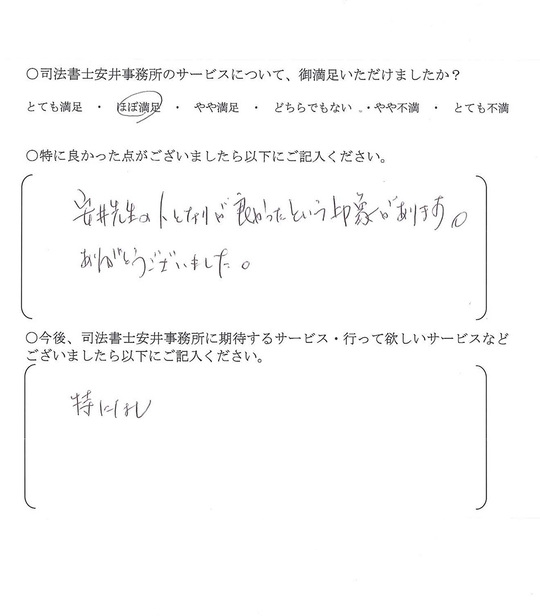 ○司法書士安井事務所のサービスについて、御満足いただけましたか？
とても満足 ・ ほぼ満足 ・ やや満足 ・ どちらでもない ・やや不満 ・ とても不満
○特に良かった点がございましたら以下にご記入ください。
安井先生の人となりが良かったという印象があります。
ありがとうございました。
○今後、司法書士安井事務所に期待するサービス・行って欲しいサービスなど
ございましたら以下にご記入ください。
特になし